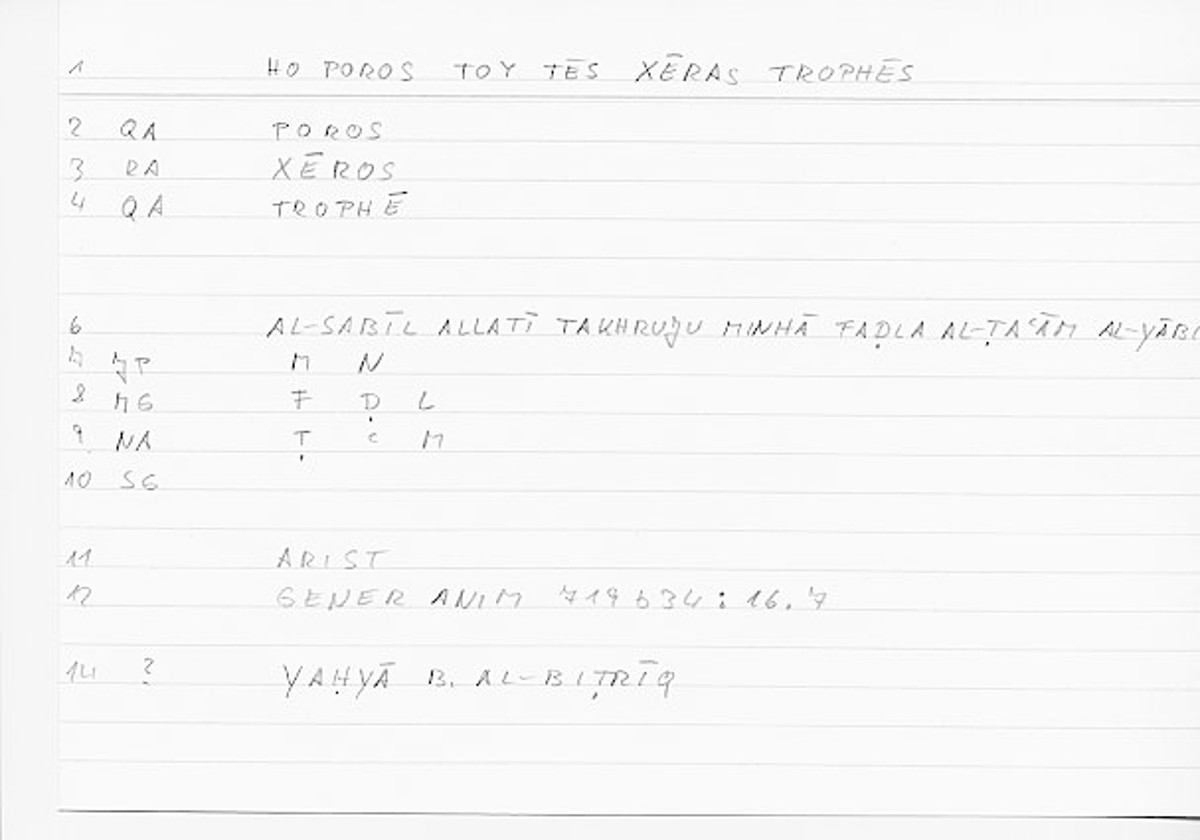 1 HO POROS TOY TĒS XĒRAS TROPHĒS
2 QA POROS
3 RA XĒROS
4 QA TROPHĒ
6 AL-SABĪL ALLATĪ TAKHRUJU MINHĀ FAḌLA AL-ṬAʿĀM AL-YĀBI
7 JP M N
8 MG F Ḍ L
9 NA Ṭ ʿ M
10 SG
11 ARIST
12 GENER ANIM 719b34:16.7
14 ? YAḤYĀ B. AL-BIṬRĪQ